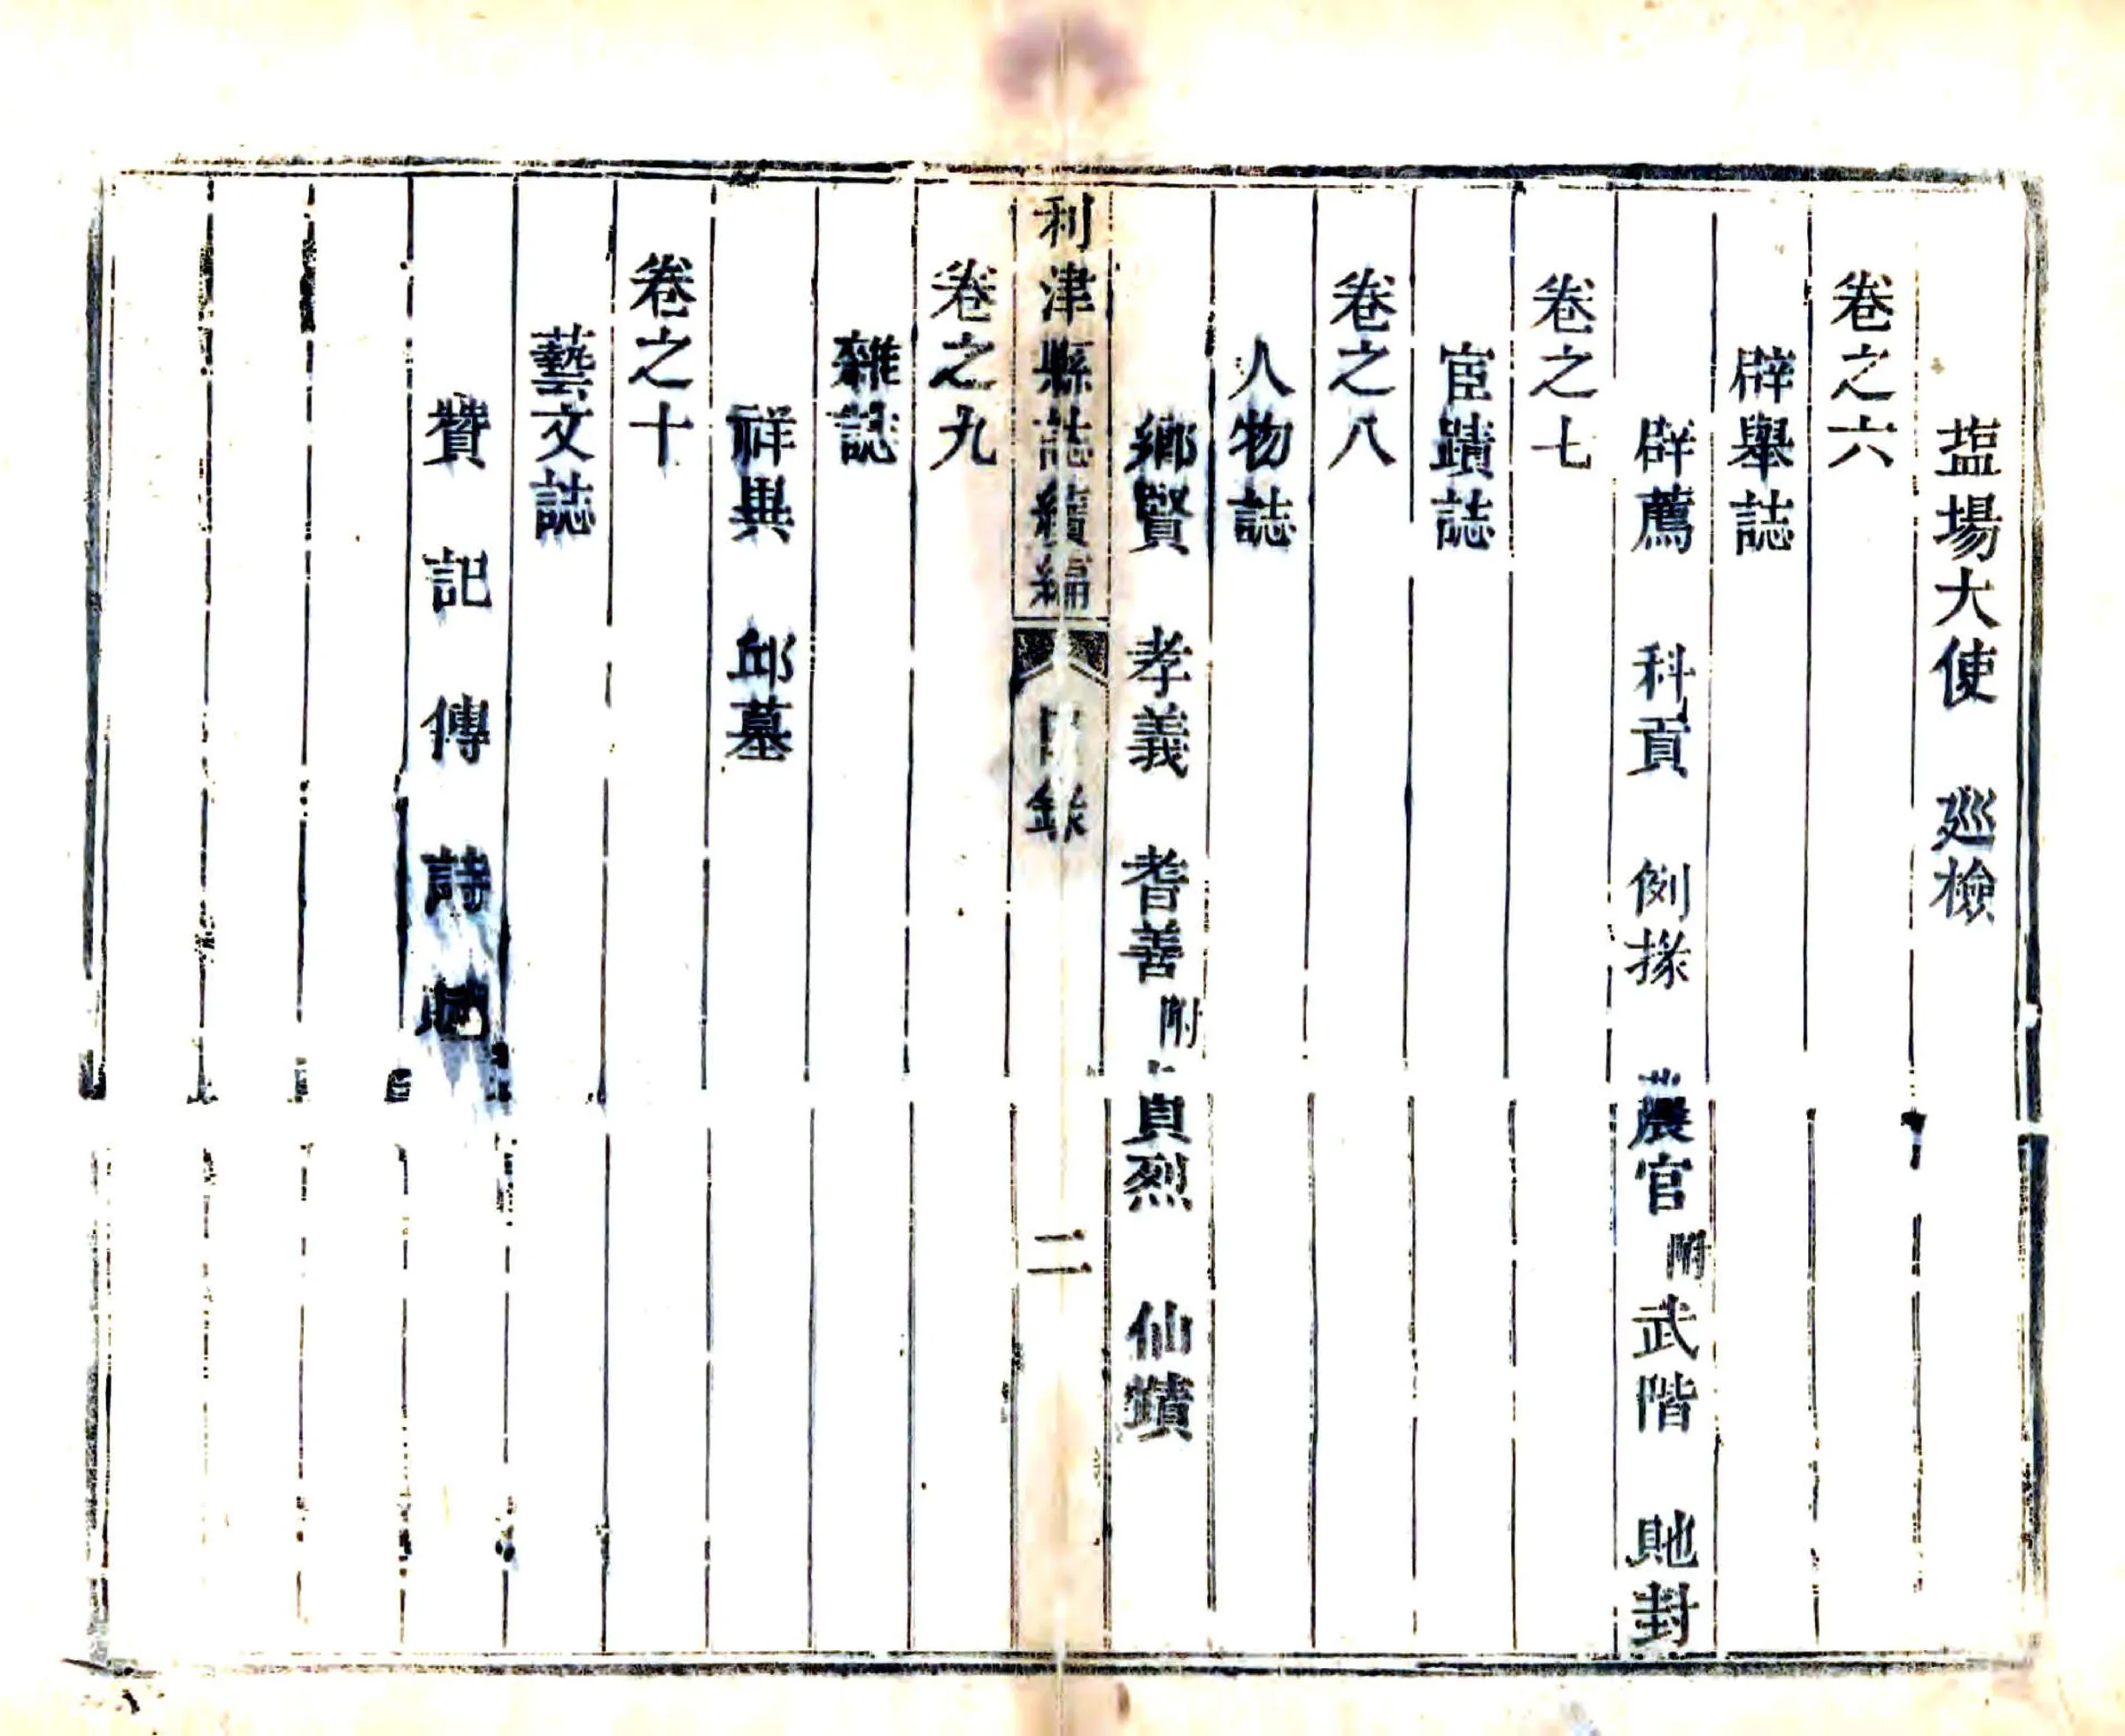 塩場大使　廵檢
卷之六
辟舉誌
辟薦　科貢　例掾　農官附　武階　貤封
卷之七
宦蹟誌
卷之八
人物誌
鄉賢　孝義　耆善附　貞烈　仙蹟
利津縣誌續編　目錄　二
卷之九
雜誌
祥異　邱墓
卷之十
藝文誌
贊　記　傳　詩　賦